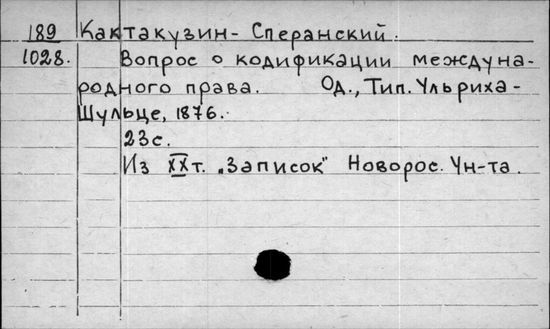 189 Кактакузин- Сперанский.
1028. Вопрос о кодификации междуна-
родного права. Од., Тип. Ульриха-
Шульце, 1876.
23с.
Из XXт. „Записок" Новорос. Ун-та.